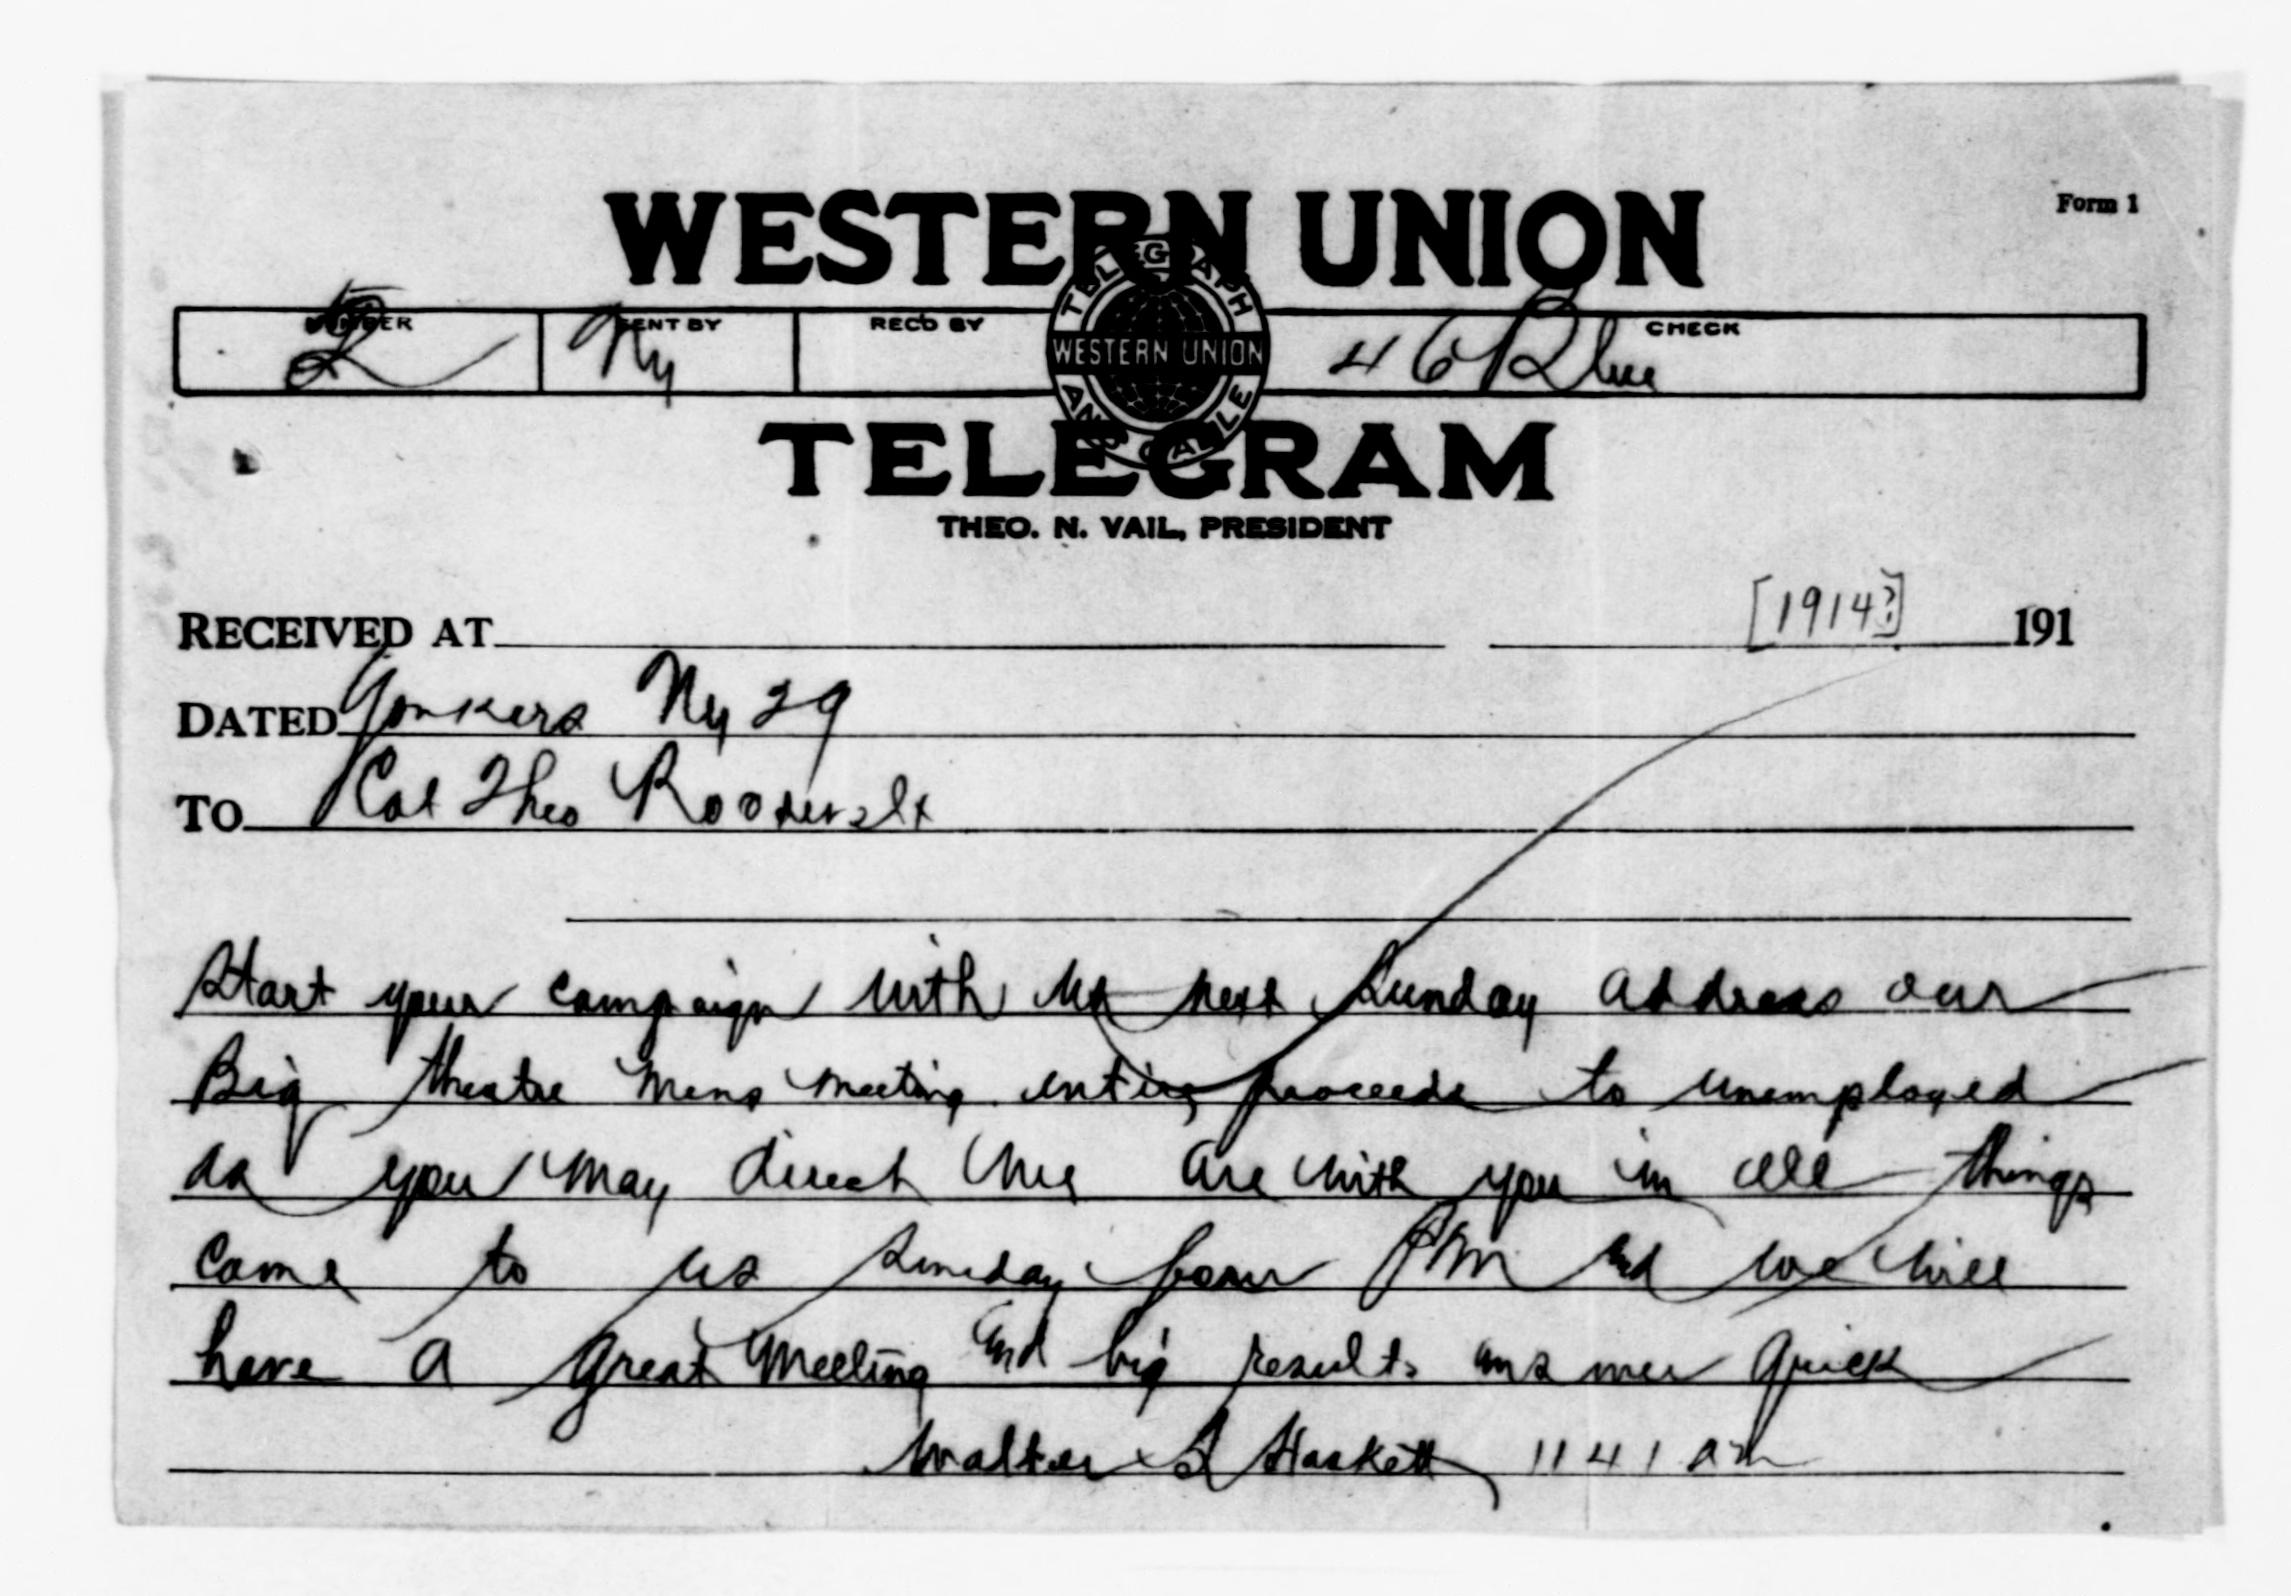 WESTERN UNION
Form 1
NUMBER SENT BY REC'D BY CHECK
Ny 46 Blue
TELEGRAPH WESTERN UNION AND CABLE
TELEGRAM
THEO. N. VAIL, PRESIDENT
RECEIVED AT [1914?] 191
DATED Yonkers Ny 29
TO Col Theo Roosevelt
Start your campaign with us next Sunday address our
Big theatre mens meeting entire proceeds to unemployed
as you may direct We are with you in all things
come to us Sunday four PM and we will
have a great meeting and big results answer quick
Walter S Haskett 1141 am